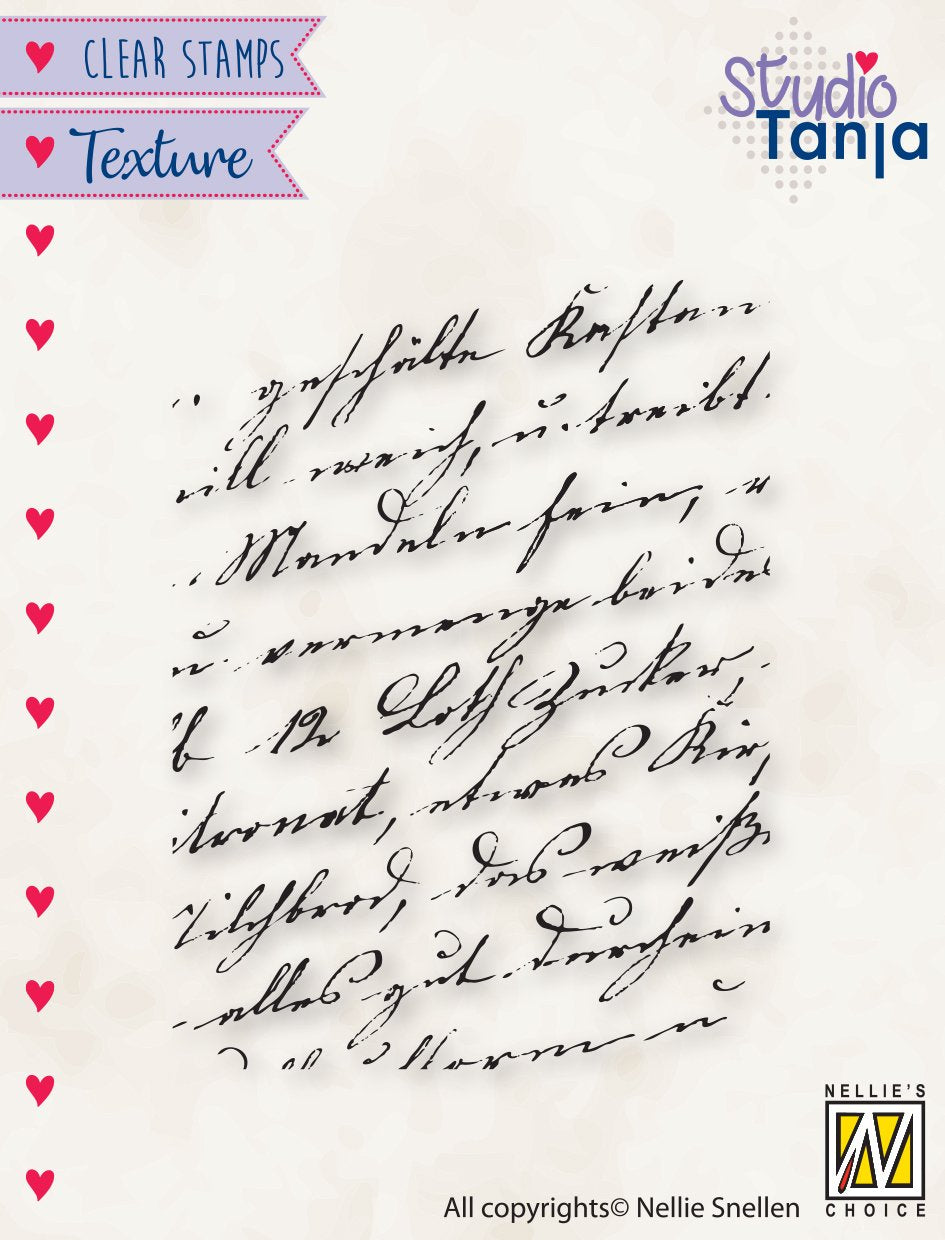 CLEAR STAMPS
Studio
Tanja
Texture
geschälte Kastan
will weich, u. treibt
Mandeln fein,
u. vermenge beides
12 Loth Zucker,
itronat, etwas Kir,
Milchbrod, das weiß
alles gut durchein
NELLIE'S
N
CHOICE
All copyrights© Nellie Snellen